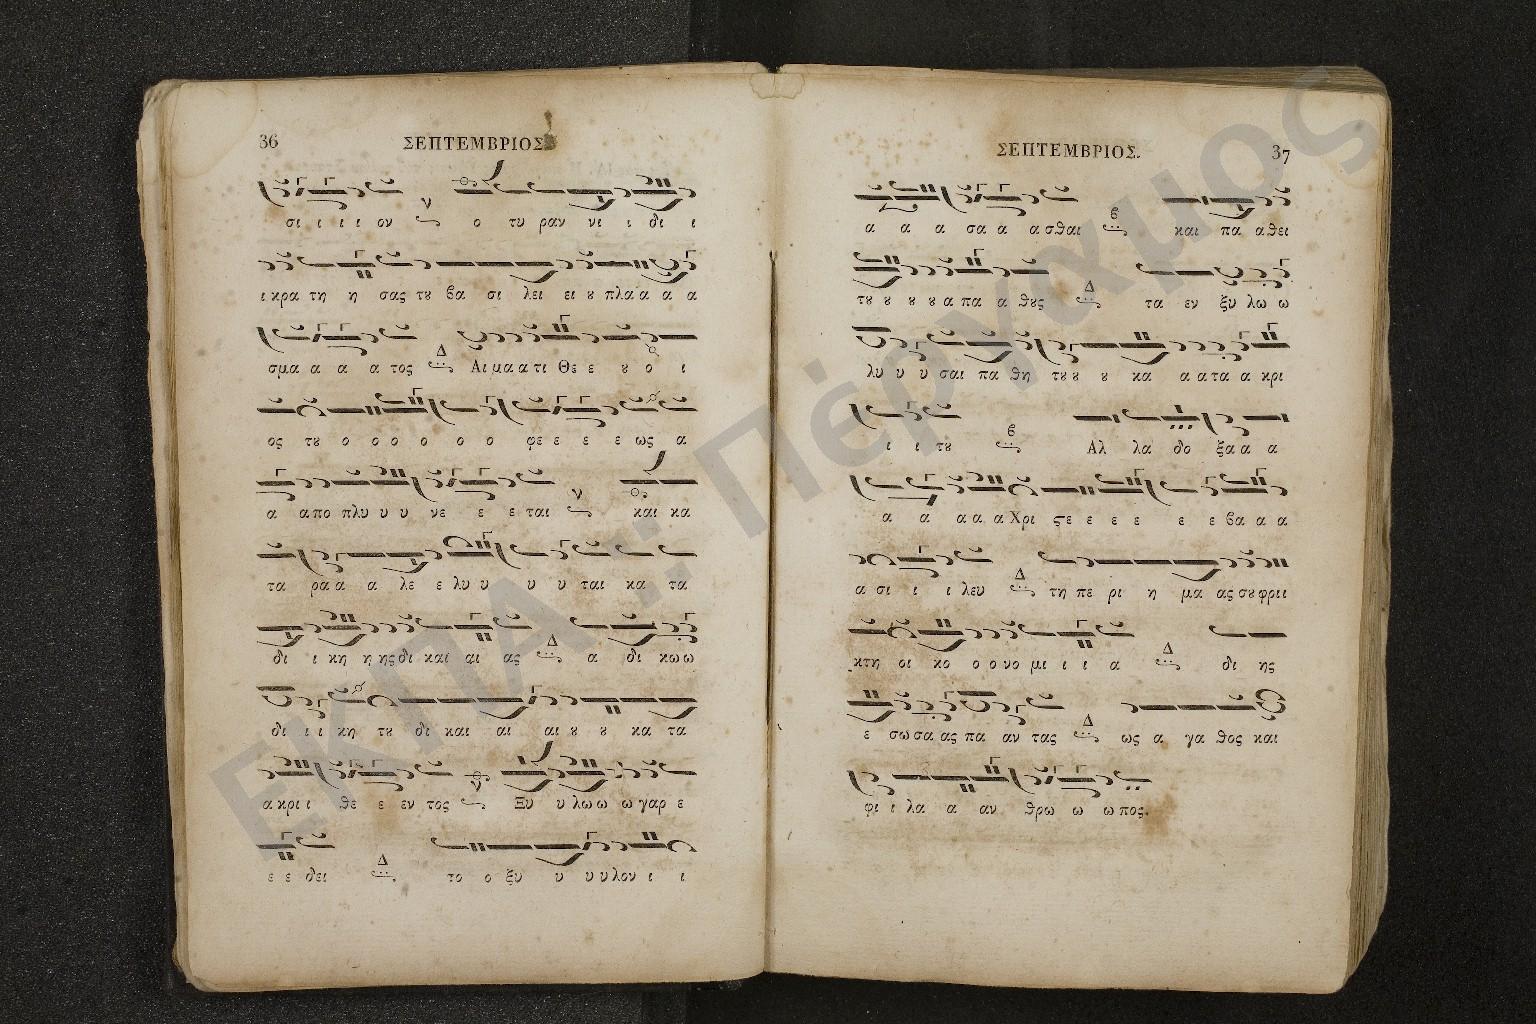 36 ΣΕΠΤΕΜΒΡΙΟΣ
σι ι ι ι ον ο τυ ραν νι ι δι ι
ι κρα τη η σας τȣ βα σι λει ει ȣ πλα α α α
σμα α α α τος Αι μα α τι Θε ε ȣ ο ι
ος τȣ ο ο ο ο ο ο φε ε ε ε ως α
α απο πλυ υ υ νε ε ε ται και κα
τα ρα α α λε ε λυ υ υ υ ται κα τα
δι ι κη η ης δι και αι ας α δι κω ω
δι ι ι κη τȣ δι και αι αι ȣ ȣ κα τα
α κρι ι θε ε εν τος Ξυ υ λω ω ω γαρ ε
ε ε δει το ο ξυ υ υ υ λον ι ι
ΣΕΠΤΕΜΒΡΙΟΣ. 37
α α α σα α α σθαι και πα α θει
τȣ ȣ ȣ ȣ α πα α θȣς τα εν ξυ λω ω
λυ υ υ σαι πα θη τȣ ȣ ȣ κα α α τα α κρι
ι ι τȣ Αλ λα δο ξα α α
α α α α α Χρι ϛε ε ε ε ε ε βα α α
α σι ι ι λευ τη πε ρι η μα ας σο φρι ι
κτη οι κο ο ο νο μι ι ι α δι ης
ε σω σα ας πα αν τας ως α γα θος και
φι ι λα α αν θρω ω ω πος.
ΕΚΠΑ :: Πέργαμος